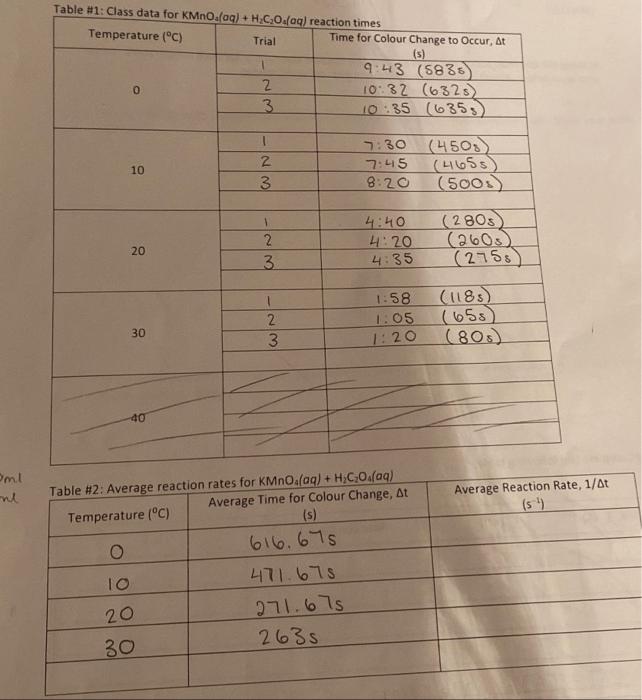 Table #1: Class data for KMnO₄(aq) + H₂C₂O₄(aq) reaction times
Temperature (⁰C) Trial Time for Colour Change to Occur, Δt
(s)
0
1 9:43 (583s)
2 10:32 (632s)
3 10:35 (635s)
10
1 7:30 (450s)
2 7:45 (465s)
3 8:20 (500s)
20
1 4:40 (280s)
2 4:20 (260s)
3 4:35 (275s)
30
1 1:58 (118s)
2 1:05 (65s)
3 1:20 (80s)
40
Table #2: Average reaction rates for KMnO₄(aq) + H₂C₂O₄(aq)
Temperature (⁰C) Average Time for Colour Change, Δt
(s) Average Reaction Rate, 1/Δt
(s⁻¹)
0 616.67s
10 471.67s
20 271.67s
30 263s